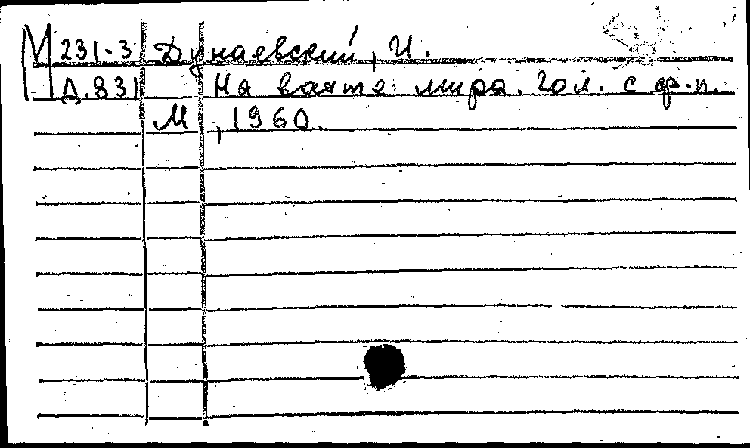 М 231-3 Дунаевский, И.
Д.831 На вахте мира. Гол. с ф.-п.
М, 1960.